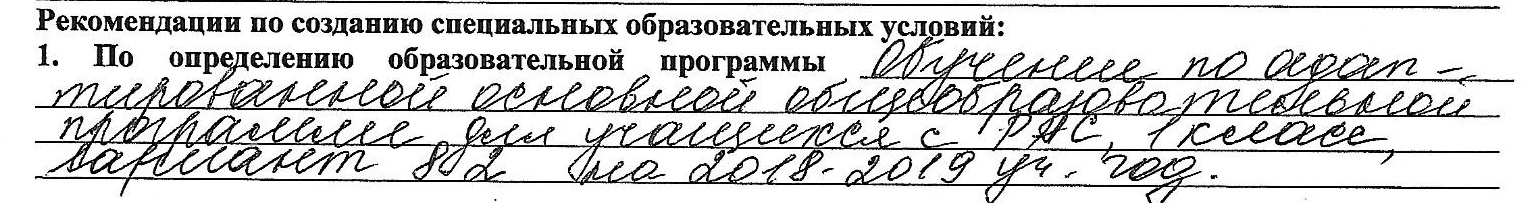 Рекомендации по созданию специальных образовательных условий:
1. По определению образовательной программы Обучение по адап-
тированной основной общеобразовательной
программе для учащихся с РАС, 1 класс,
вариант 8 2 на 2018-2019 уч. год.